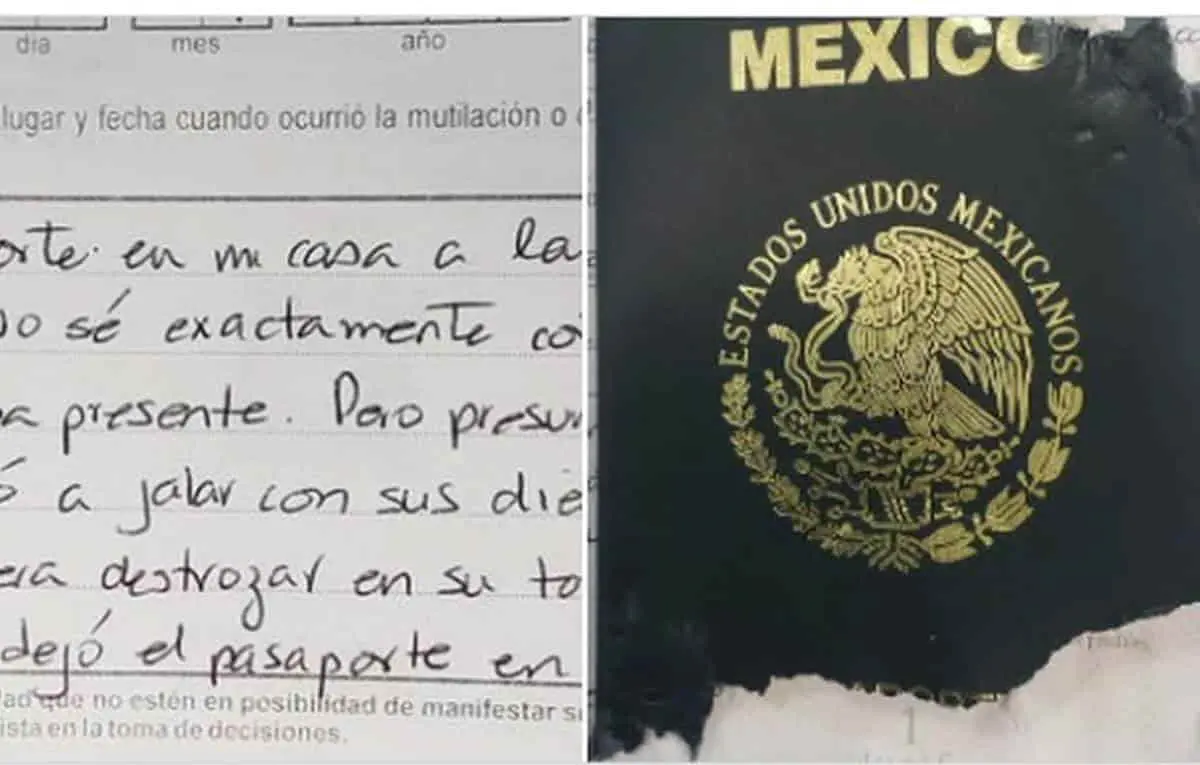 dia mes año
lugar y fecha cuando ocurrió la mutilación o
orte. en mi casa a la
No sé exactamente co
a presente. Pero presu
ó a jalar con sus die
era destrozar en su to
dejó el pasaporte en
ad que no estén en posibilidad de manifestar s
ista en la toma de decisiones.
MEXICO
ESTADOS UNIDOS MEXICANOS
1